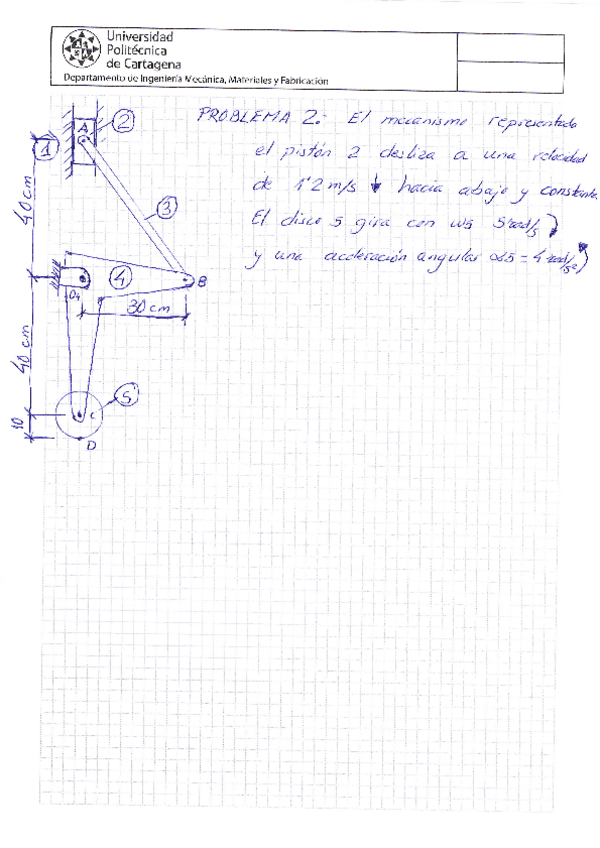 Universidad
Politécnica
de Cartagena
Departamento de Ingeniería Mecánica, Materiales y Fabricación
PROBLEMA 2: El mecanismo representado
el pistón 2 desliza a una velocidad
de 1'2 m/s ↓ hacia abajo y constante.
El disco 5 gira con ω5 5 rad/s
y una aceleración angular α5 = 4 rad/s²
1
A
2
40 cm
3
4
B
O4
30 cm
40 cm
5
C
10
D